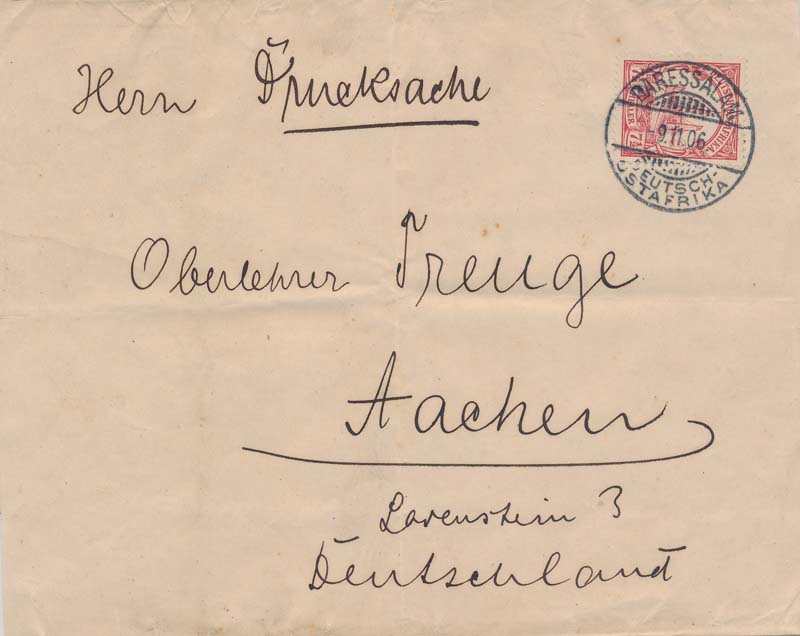 Herrn Drucksache
DARESSALAM
-9.11.06
DEUTSCH-
OSTAFRIKA
7½
Oberlehrer Treuge
Aachen
Lavenstein 3
Deutschland